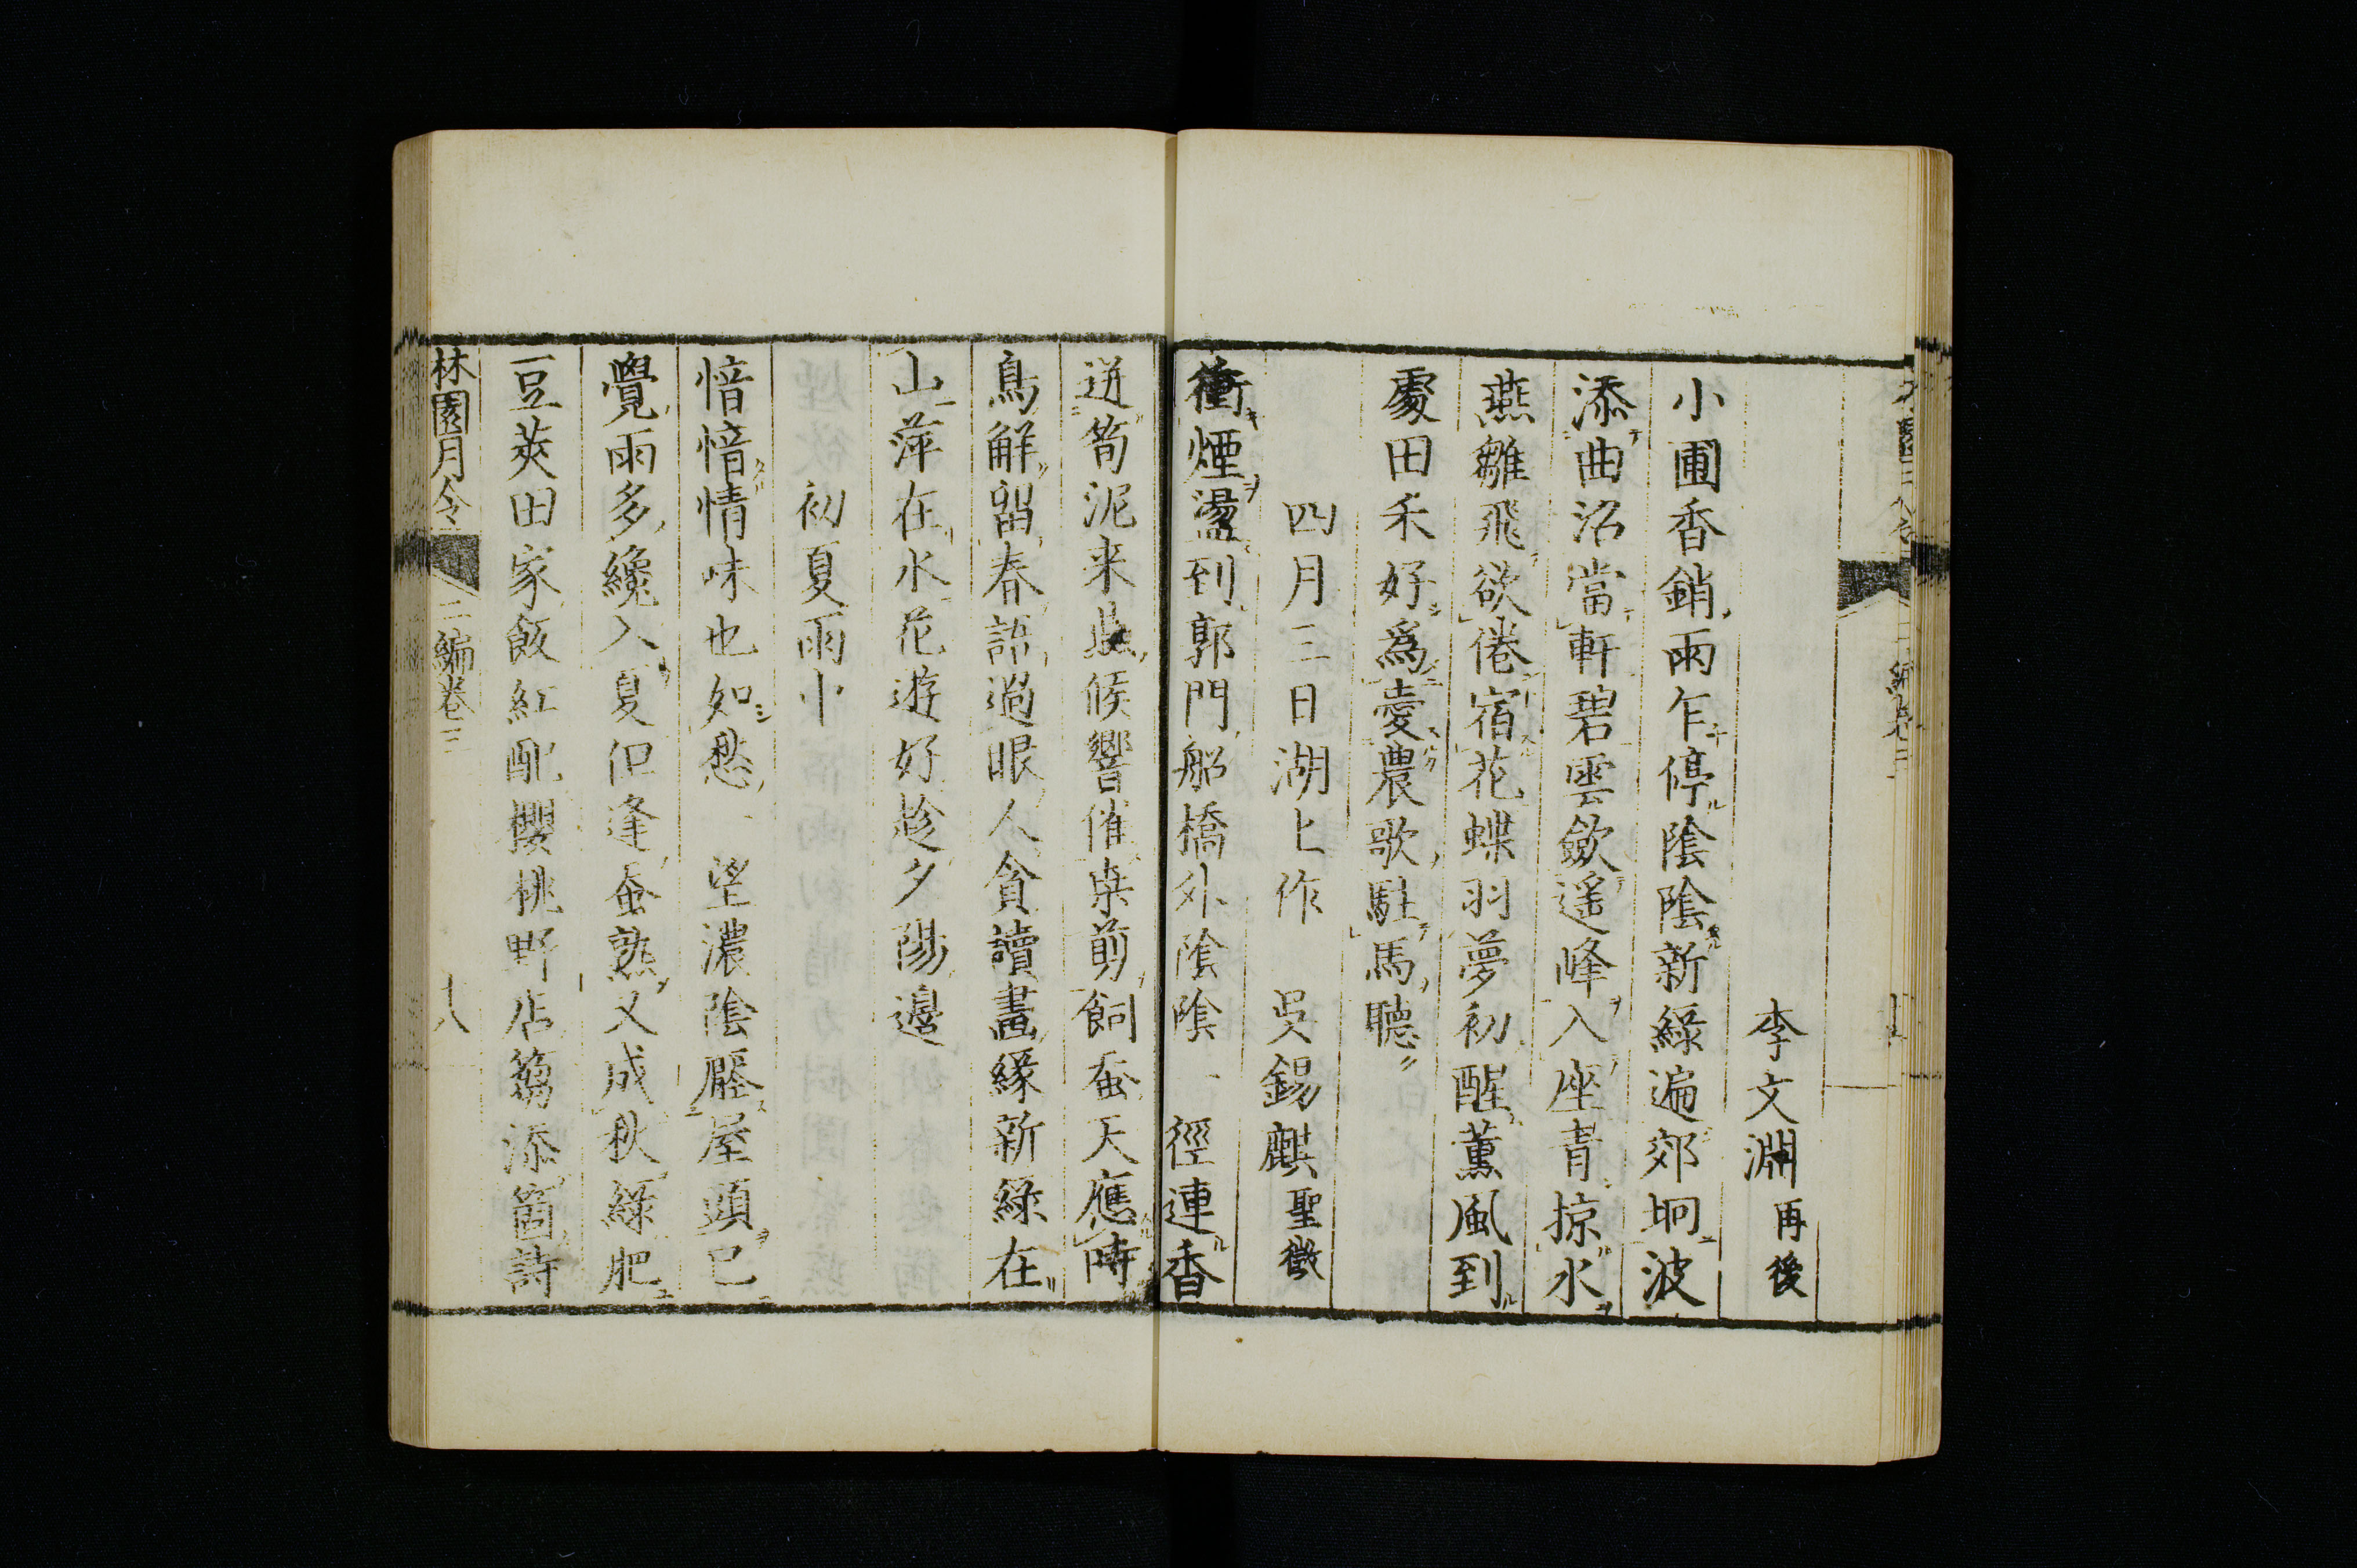 李文淵再後
小圃香銷雨乍停陰陰新綠遍郊坰波
添曲沼當軒碧雲歛遥峰入座青掠水
燕雛飛欲倦宿花蝶羽夢初醒薫風到
處田禾好爲愛農歌駐馬聽
四月三日湖上作 吳錫麒聖徴
衝煙盪到郭門船橋外陰陰一徑連香
迸筍泥来蚕候響催桒剪飼蚕天應時
鳥觧留春語過眼人貪讀畫緣新綠在
山萍在水花遊好趁夕陽邊
初夏雨中
愔愔情味也如愁一望濃陰壓屋頭已
覺雨多纔入夏但逢蚕熟又成秋綠肥
豆莢田家飯紅配櫻桃野店蒭添箇詩
林園月令 二編卷三 十八